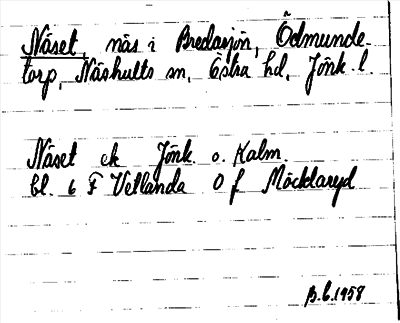 Näset, näs i Bredasjön, Ödmunde-
torp, Näshults sn, Östra hd, Jönk. l.
Näset ek Jönk. o. Kalm.
bl. 6 F Vetlanda O f Möcklaryd
B.L.1958